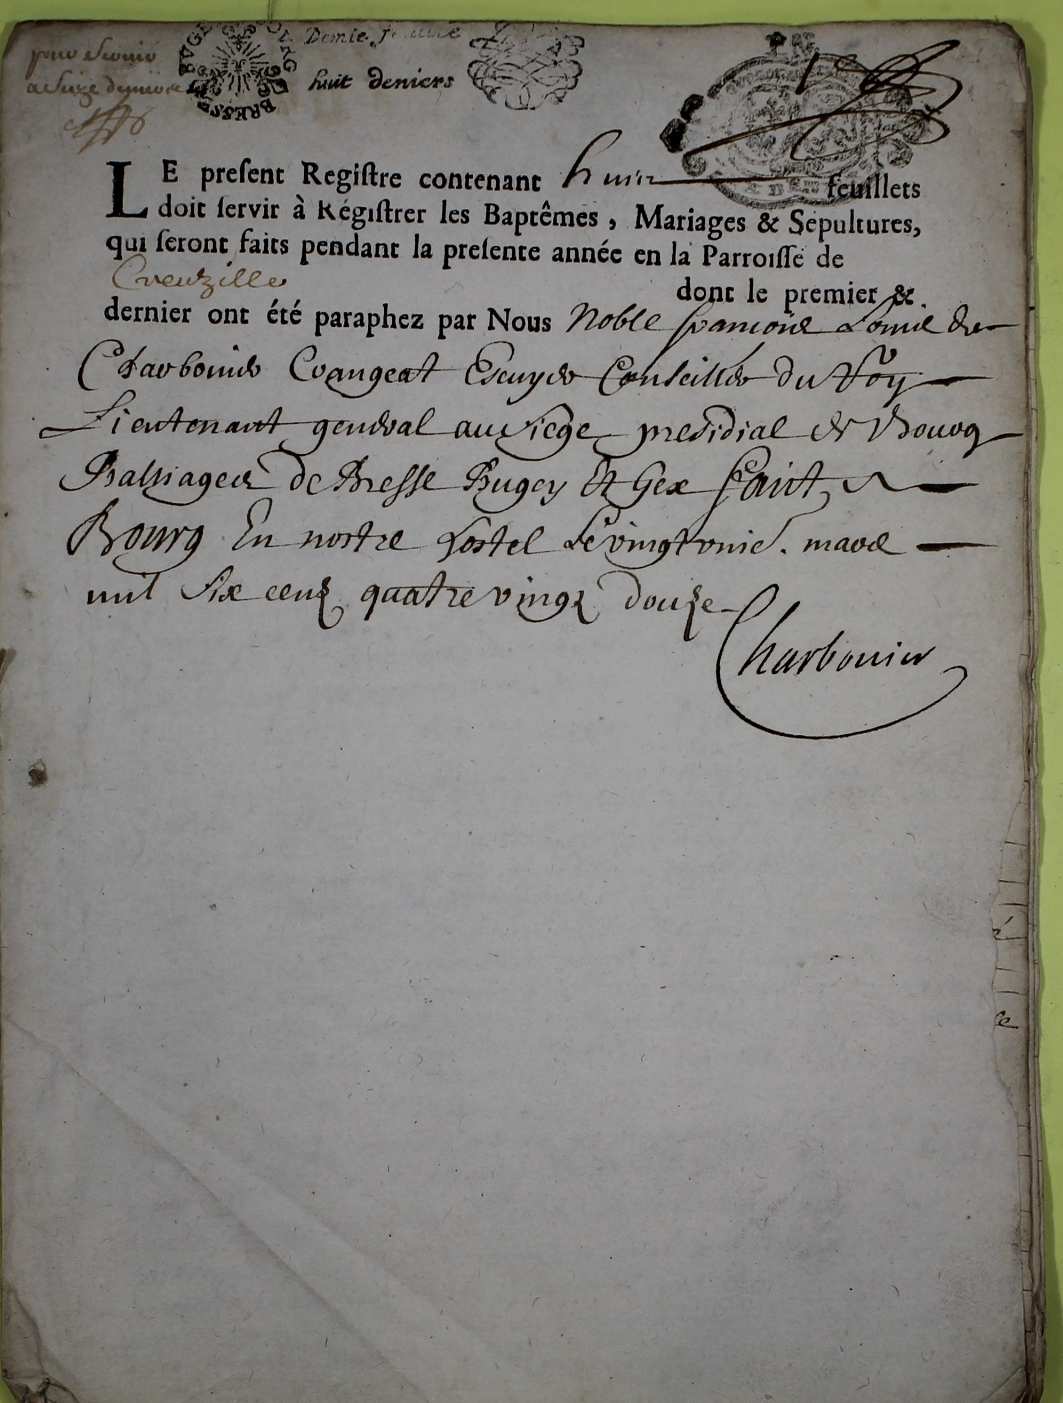 pour servir
a seize deniers
BUGEY BOURG BRESSE
Demie feuille
huit deniers
LE preſent Regiſtre contenant huit feuillets
doit ſervir à Régiſtrer les Baptêmes, Mariages & Sépultures,
qui ſeront faits pendant la preſente année en la Parroiſſe de
Creuzille
dont le premier &
dernier ont été paraphez par Nous Noble francois Louis de
Charbonier Crangeat Escuyer Conseiller du Roy
Lieutenant general au siege presidial de Bourg
Balliages de Bresse Bugey et Gex faict a
Bourg En nostre hostel Le vingt unie. mars
mil six cens quatre vingt douze
Charbonier